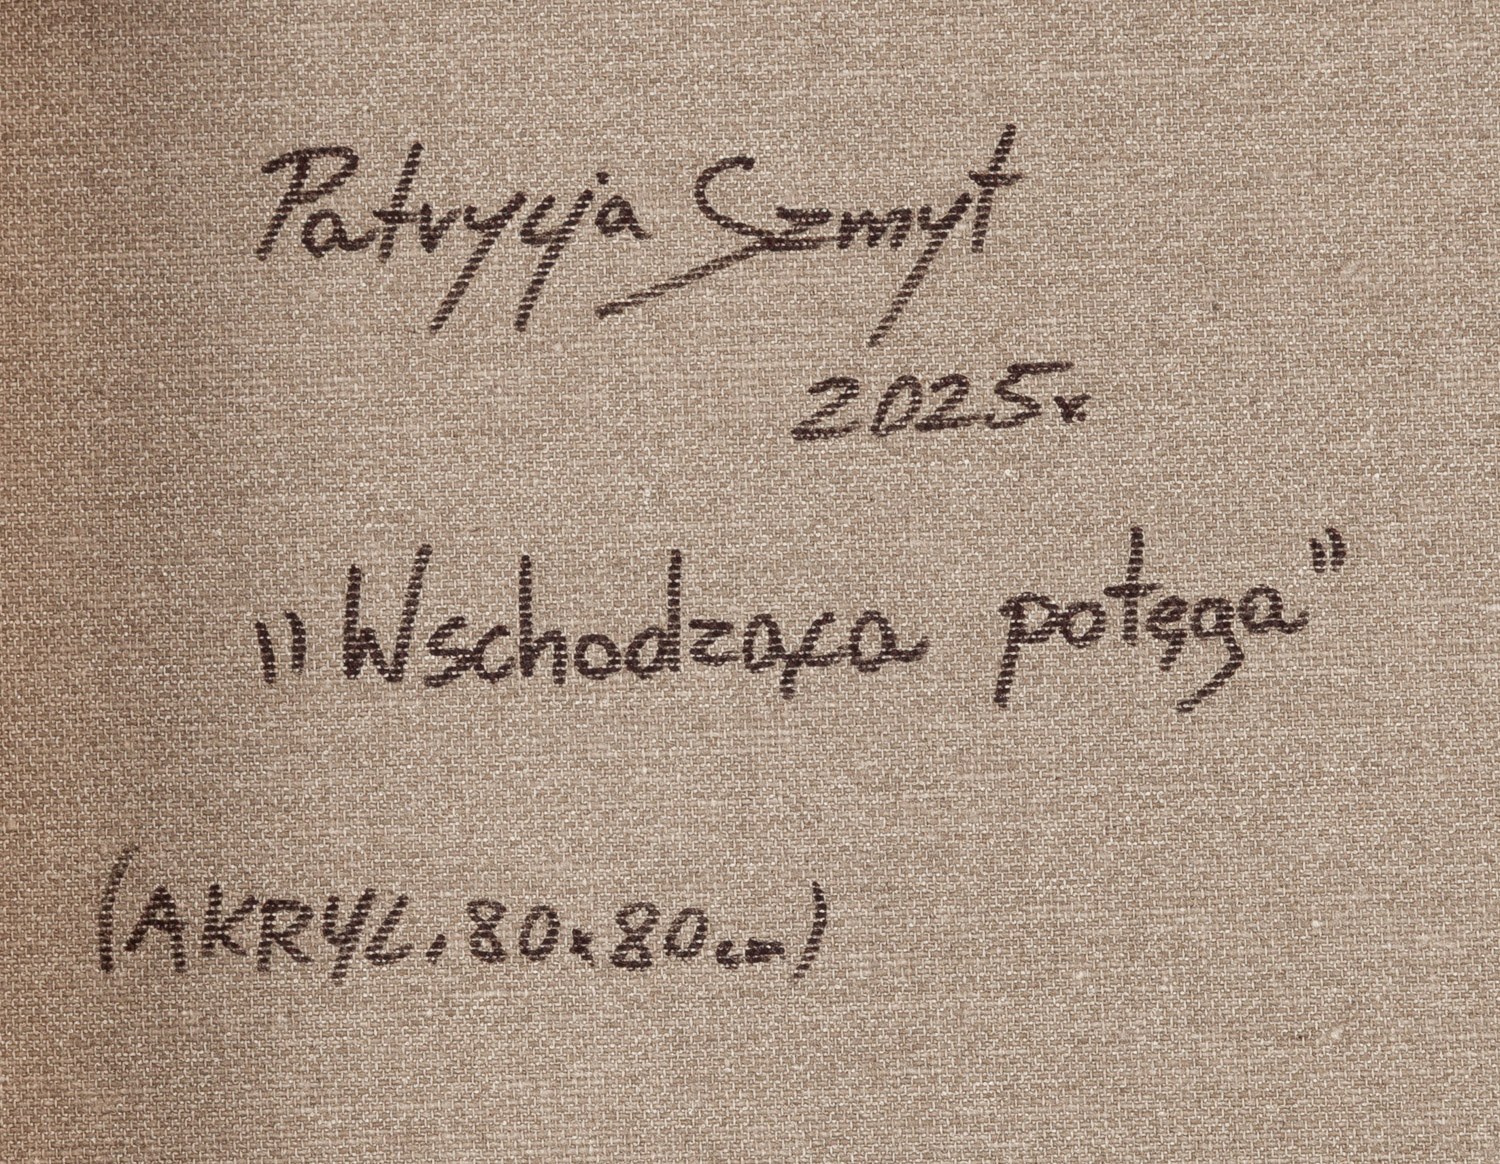 Patrycja Szmyt
2025r
„Wschodząca potęga”
(AKRYL, 80x80cm)